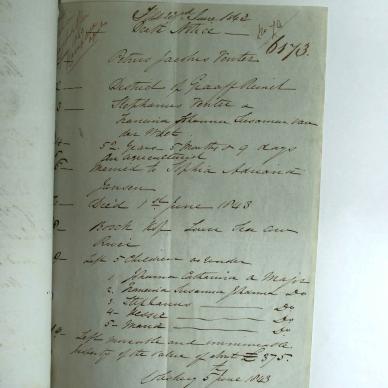 June 1843
Death Notice
6173.
Petrus Jacobus Venter
2 — District of Graaff Reinet
3 — Stephanus Venter &
Francina Johanna Susanna van
der Walt.
4 — 52 Years 5 Months & 9 days
An agriculturist
Married to Sophia Adriana
Jansen
7 — Died 1st June 1843
8 — Sea Cow
River
9 — Left 5 Children as under
1. Johanna Catharina a Major
2. Francina Susanna Johanna Do
3. Stephanus Do
4. Hessie Do
5. Maria Do
10 — Left movable and immovable
property of the value of about £375.
5th June 1843